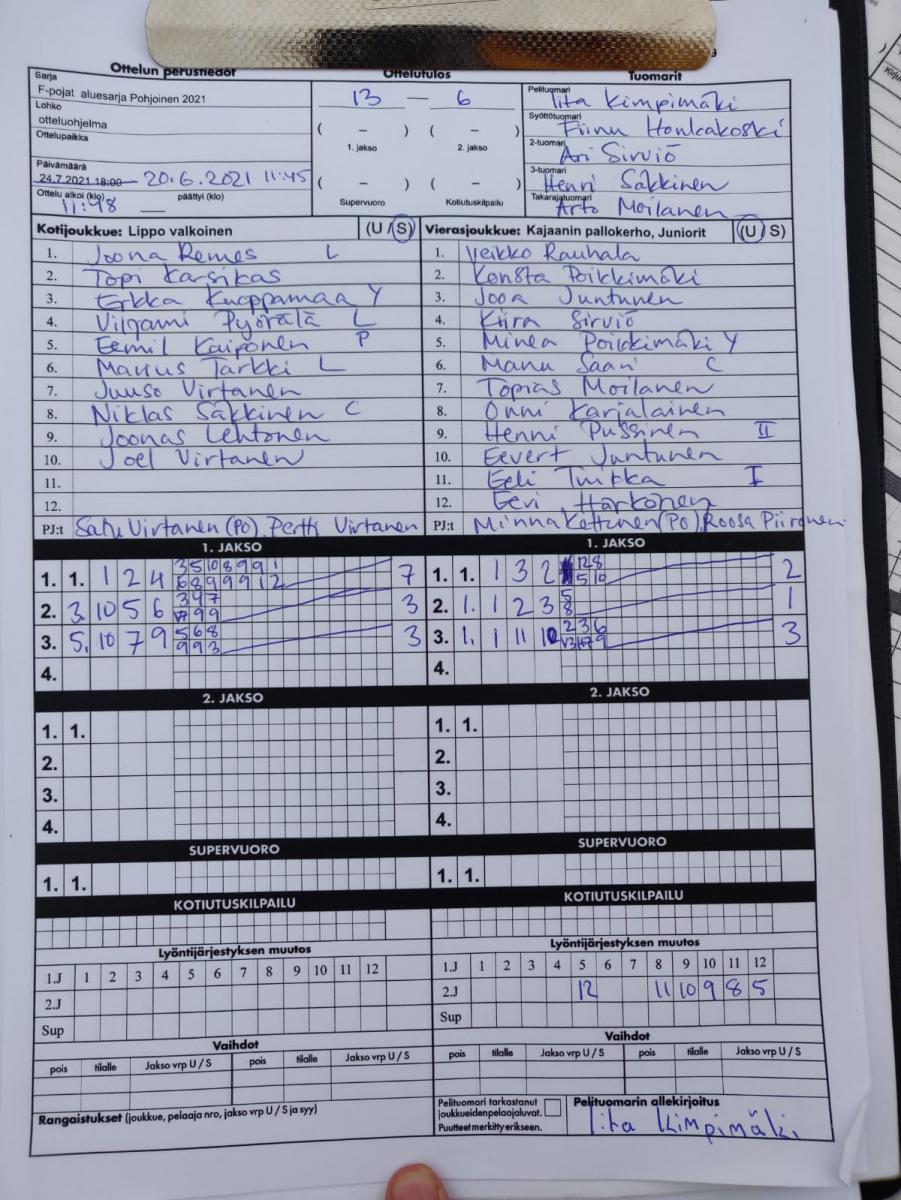 Ottelun perustiedot
Ottelutulos
Tuomarit
Sarja
F-pojat aluesarja Pohjoinen 2021
Lohko
otteluohjelma
Ottelupaikka
Päivämäärä
24.7.2021 18:00 20.6.2021 11:45
Ottelu alkoi (klo) päättyi (klo)
11:48
13 – 6
( – ) ( – )
1. jakso 2. jakso
( – ) ( – )
Supervuoro Kotiutuskilpailu
Pelituomari
Iita Kimpimäki
Syöttötuomari
Fiinu Honkakoski
2-tuomari
Ari Sirviö
3-tuomari
Henri Säkkinen
Takarajatuomari
Arto Moilanen
Kotijoukkue: Lippo valkoinen (U / S)
1. Joona Remes L
2. Topi Karsikas
3. Erkka Kuoppamaa Y
4. Vilgami Pyörälä L
5. Eemil Kaiponen P
6. Marius Tarkki L
7. Juuso Virtanen
8. Niklas Säkkinen C
9. Joonas Lehtonen
10. Joel Virtanen
11.
12.
PJ:t Satu Virtanen (PO), Pertti Virtanen
Vierasjoukkue: Kajaanin pallokerho, Juniorit (U / S)
1. Veikko Rauhala
2. Konsta Poikkimäki
3. Jooa Juntunen
4. Kiira Sirviö
5. Minea Poikkimäki Y
6. Manu Saari C
7. Topias Moilanen
8. Onni Karjalainen
9. Henni Pussinen II
10. Eevert Juntunen
11. Eeli Tuikka I
12. Eevi Härkönen
PJ:t Minna Kettunen (PO), Roosa Piironen
1. JAKSO
1. 1. 1 2 4 3 5 10 8 9 9 1 7
6 8 9 9 9 12
2. 3. 10 5 6 3 4 7 3
9 9
3. 5. 10 7 9 5 6 8 3
9 9 3
4.
1. JAKSO
1. 1. 1 3 2 1 2 8 2
5 10
2. 1. 1 2 3 5 1
8
3. 1. 1 11 10 2 3 6 3
4.
2. JAKSO
1. 1.
2.
3.
4.
2. JAKSO
1. 1.
2.
3.
4.
SUPERVUORO
1. 1.
SUPERVUORO
1. 1.
KOTIUTUSKILPAILU
KOTIUTUSKILPAILU
Lyöntijärjestyksen muutos
1.J 1 2 3 4 5 6 7 8 9 10 11 12
2.J
Sup
Lyöntijärjestyksen muutos
1.J 1 2 3 4 5 6 7 8 9 10 11 12
2.J 12 11 10 9 8 5
Sup
Vaihdot
pois tilalle Jakso vrp U / S pois tilalle Jakso vrp U / S
Vaihdot
pois tilalle Jakso vrp U / S pois tilalle Jakso vrp U / S
Rangaistukset (joukkue, pelaaja nro, jakso vrp U / S ja syy)
Pelituomari tarkastanut
joukkueidenpelaajaluvat.
Puutteet merkitty erikseen.
Pelituomarin allekirjoitus
Iita Kimpimäki